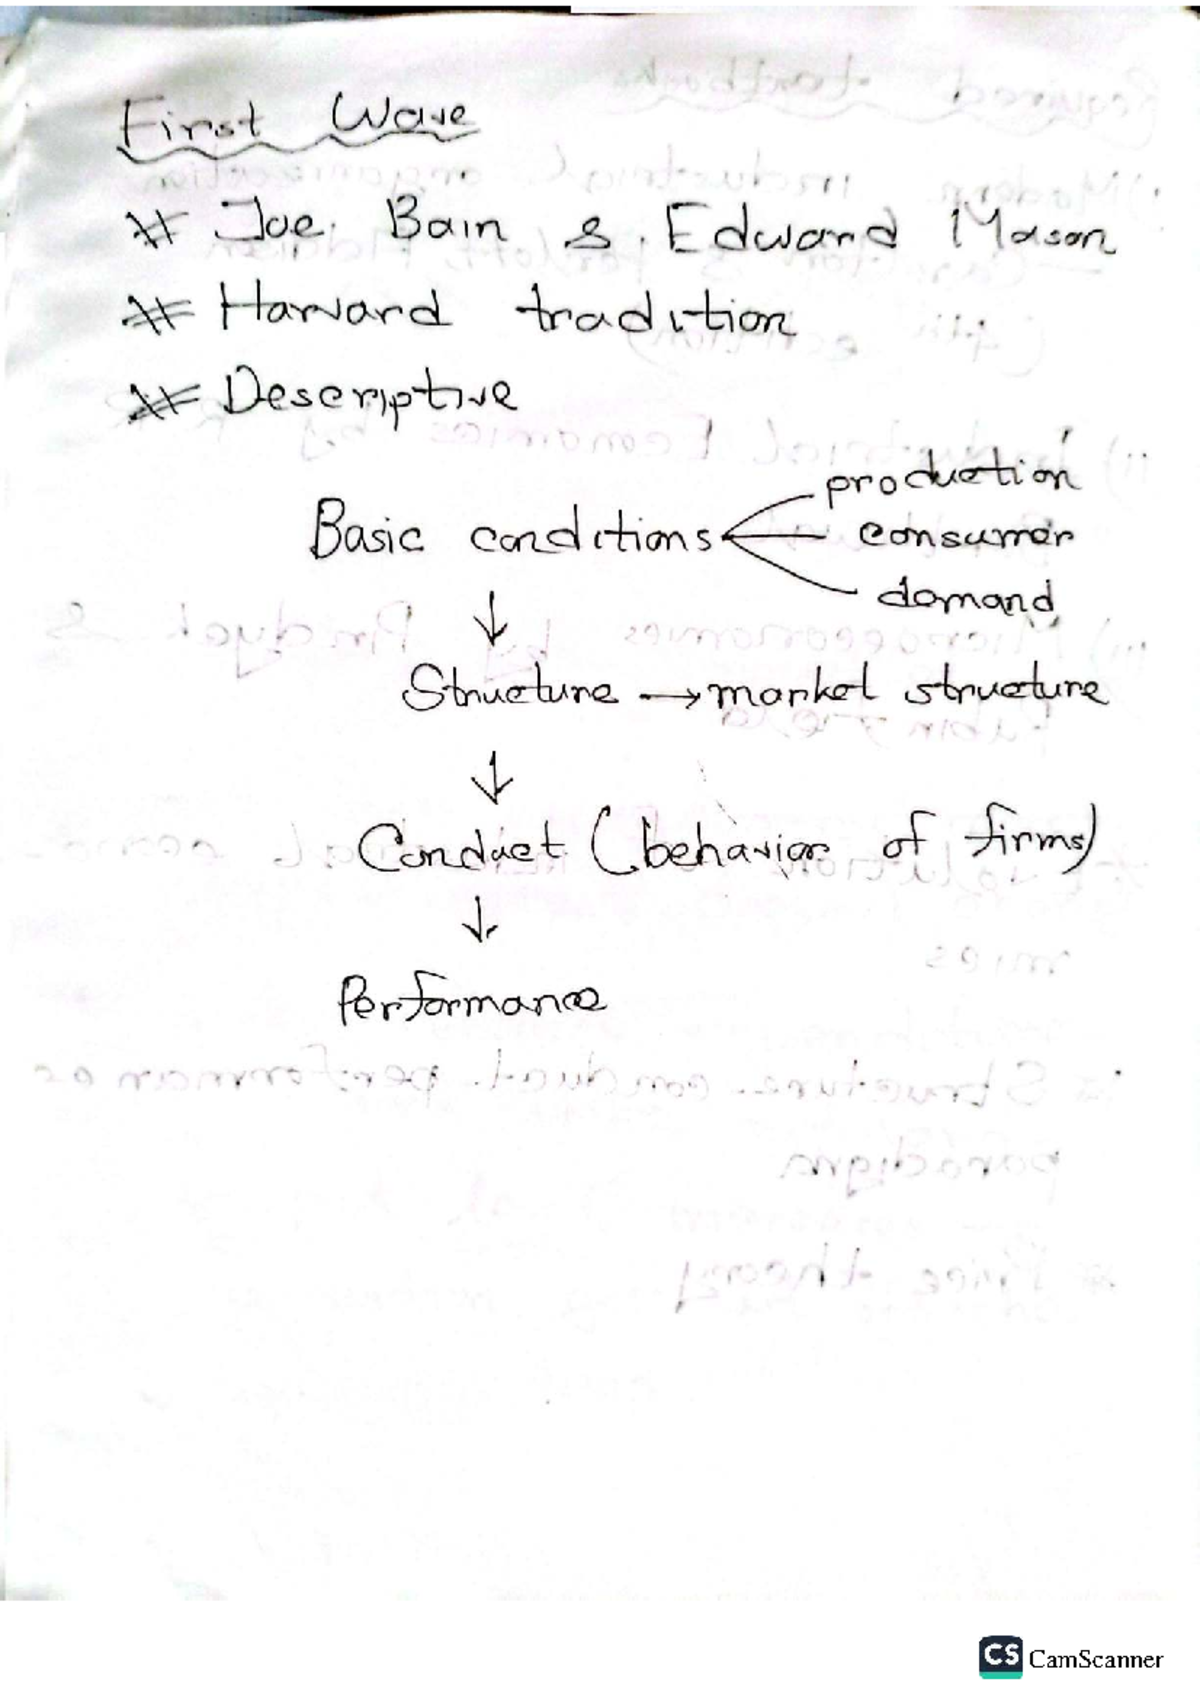 First Wave
# Joe Bain & Edward Mason
# Harvard tradition
# Descriptive
production
Basic conditions consumer
demand
↓
Structure → market structure
↓
Conduct (behavior of firms)
↓
Performance
CS CamScanner